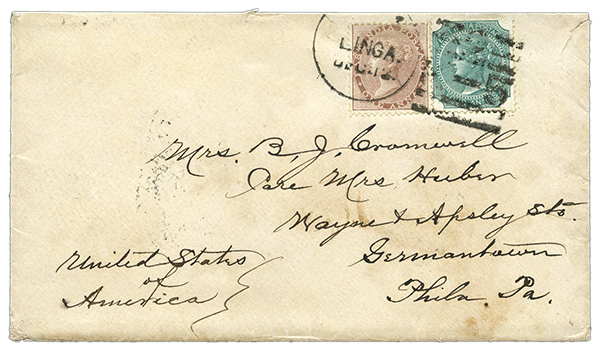 LINGA.
DEC:12.
ONE ANNA
Mrs. B. J. Cromwell
Care Mrs Huber
Wayne & Apsley Sts.
Germantown
Phila. Pa.
United States
of
America